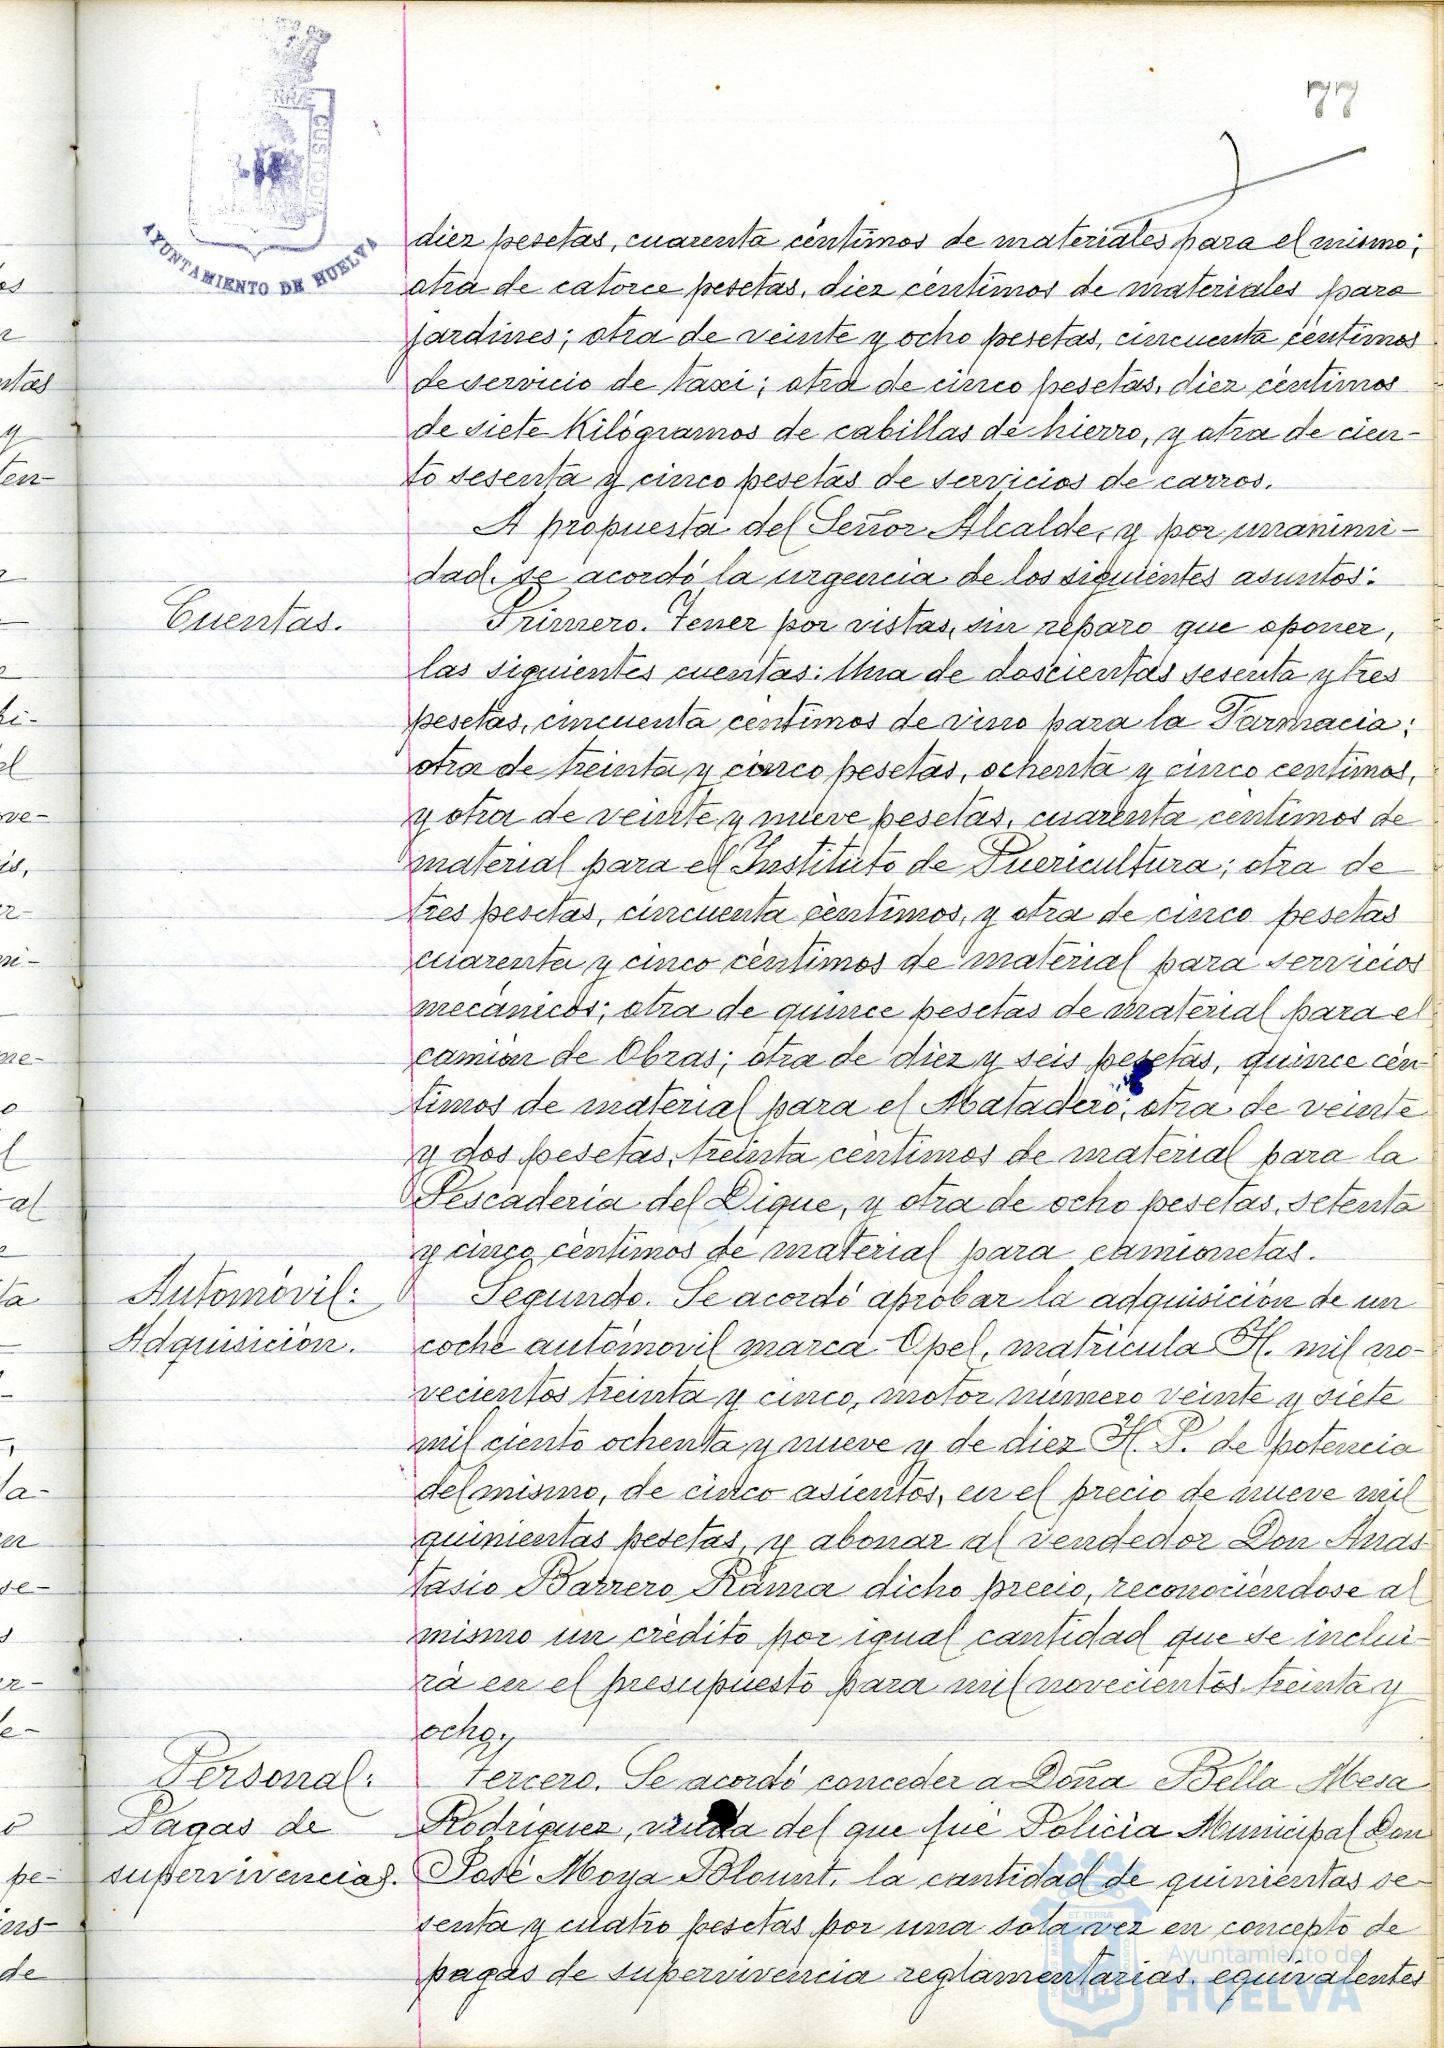 77
AYUNTAMIENTO DE HUELVA
diez pesetas, cuarenta céntimos de materiales para el mismo;
otra de catorce pesetas, diez céntimos de materiales para
jardines; otra de veinte y ocho pesetas, cincuenta céntimos
de servicio de taxi; otra de cinco pesetas, diez céntimos
de siete Kilógramos de cabillas de hierro, y otra de cien-
to sesenta y cinco pesetas de servicios de carros.
A propuesta del Señor Alcalde, y por unanimi-
dad, se acordó la urgencia de los siguientes asuntos:
Cuentas.
Primero. Tener por vistas, sin reparo que oponer,
las siguientes cuentas: Una de doscientas sesenta y tres
pesetas, cincuenta céntimos de vino para la Farmacia;
otra de treinta y cinco pesetas, ochenta y cinco centimos,
y otra de veinte y nueve pesetas, cuarenta centimos de
material para el Instituto de Puericultura; otra de
tres pesetas, cincuenta céntimos, y otra de cinco pesetas
cuarenta y cinco céntimos de material para servicios
mecánicos; otra de quince pesetas de material para el
camión de Obras; otra de diez y seis pesetas, quince cén-
timos de material para el Matadero; otra de veinte
y dos pesetas, treinta céntimos de material para la
Pescadería del Dique, y otra de ocho pesetas, setenta
y cinco céntimos de material para camionetas.
Automóvil:
Adquisición.
Segundo. Se acordó aprobar la adquisición de un
coche automovil marca Opel, matrícula H. mil no-
vecientos treinta y cinco, motor número veinte y siete
mil ciento ochenta y nueve y de diez H. P. de potencia
del mismo, de cinco asientos, en el precio de nueve mil
quinientas pesetas, y abonar al vendedor Don Anas-
tasio Barrero Rama dicho precio, reconociéndose al
mismo un crédito por igual cantidad que se inclui-
rá en el presupuesto para mil novecientos treinta y
ocho.
Personal:
Pagas de
supervivencias.
Tercero. Se acordó conceder a Doña Bella Mesa
Rodríguez, viuda del que fué Policía Municipal Don
José Moya Blount, la cantidad de quinientas se-
senta y cuatro pesetas por una sola vez en concepto de
pagas de supervivencia reglamentarias, equivalentes
Ayuntamiento de
HUELVA